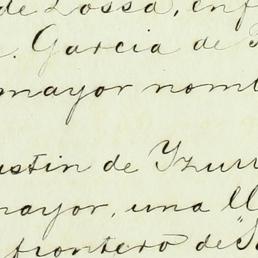 de Lossa, enf
Garcia de
mayor nom
ustin de Yzu
mayor, una ll
frontero de "S